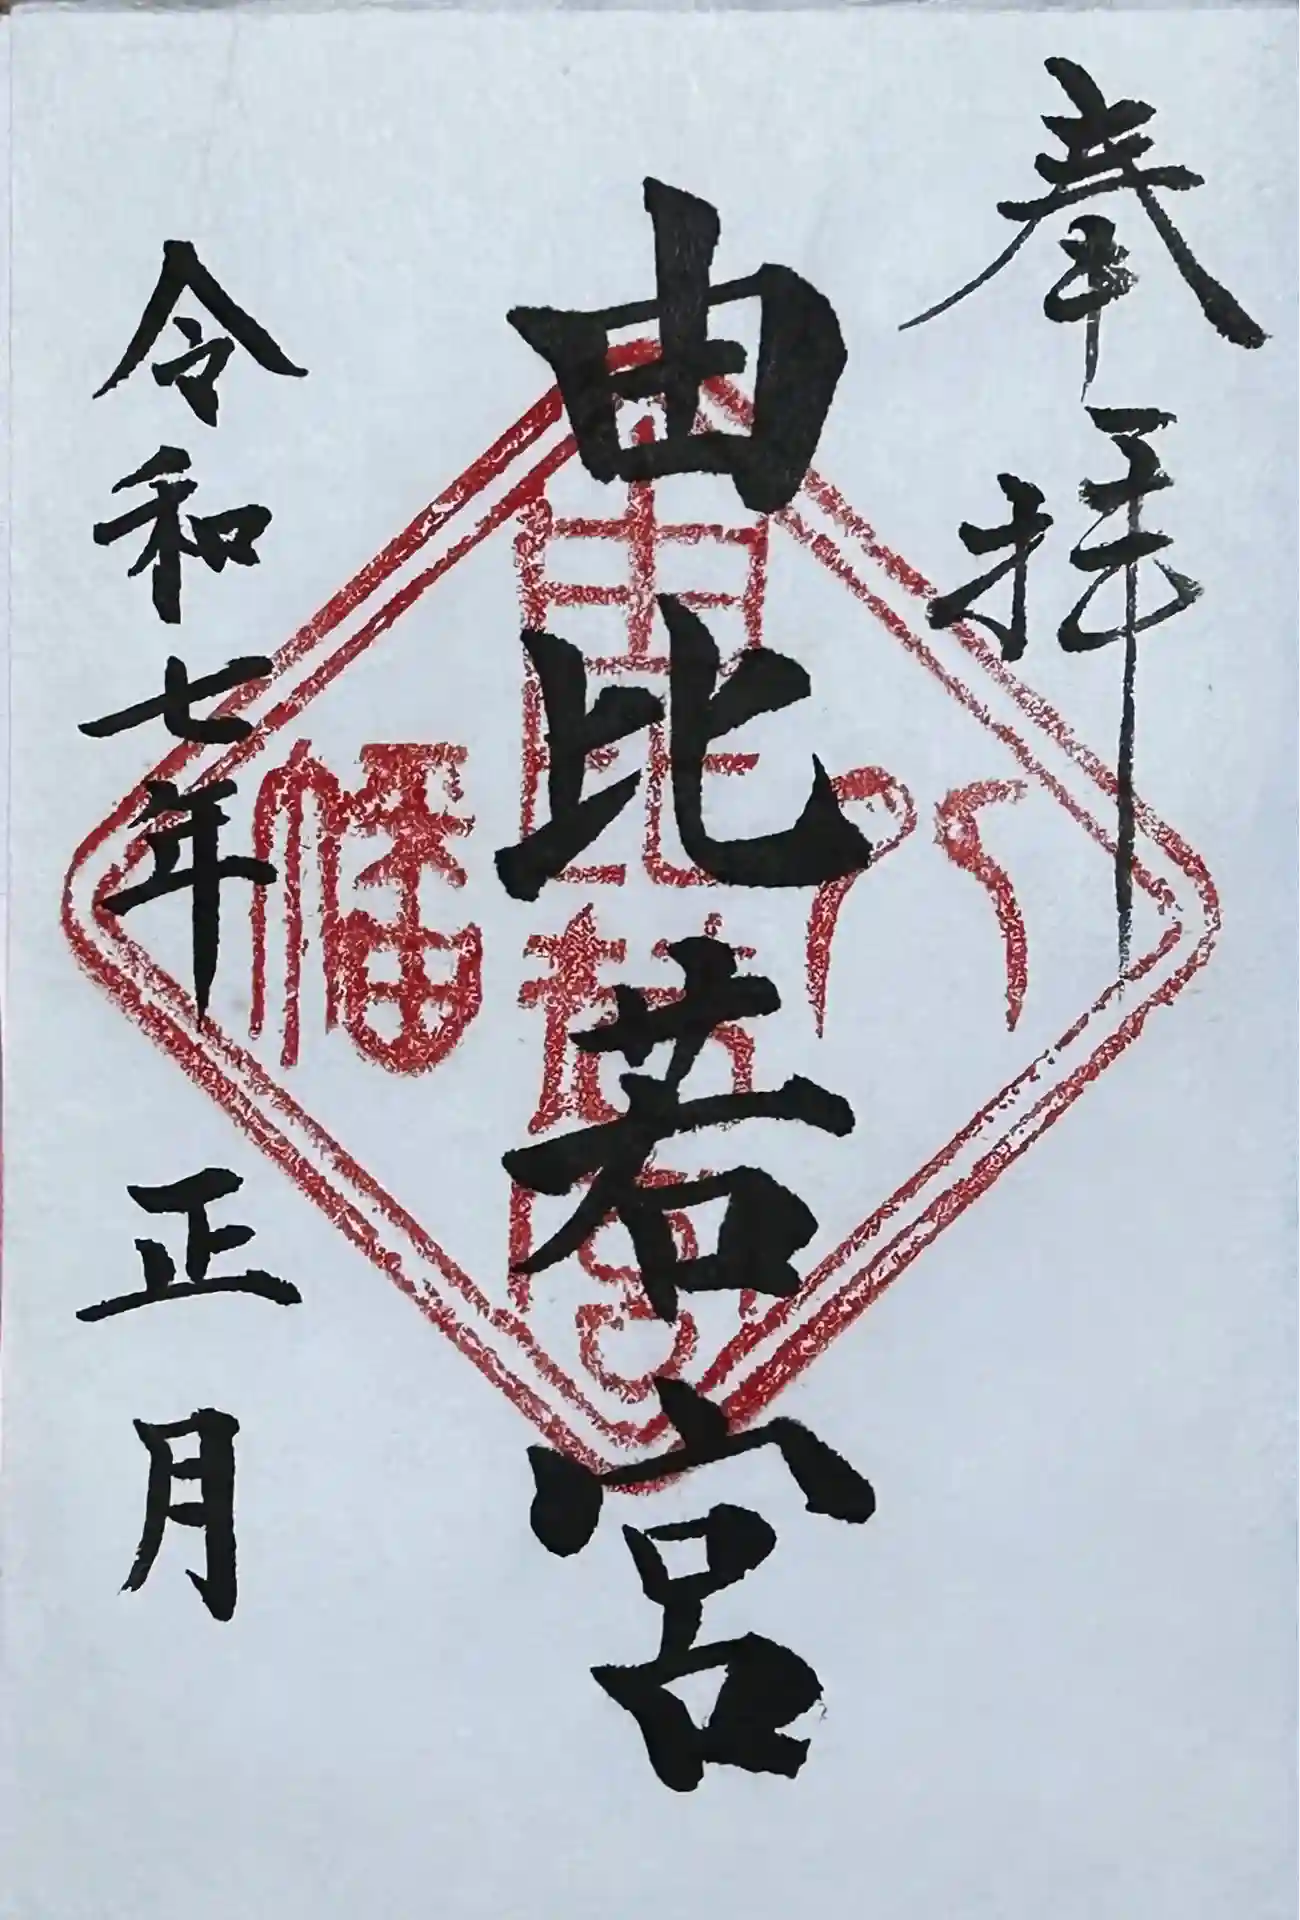 奉拝
由比若宮
八幡
由比若宮
令和七年 正月